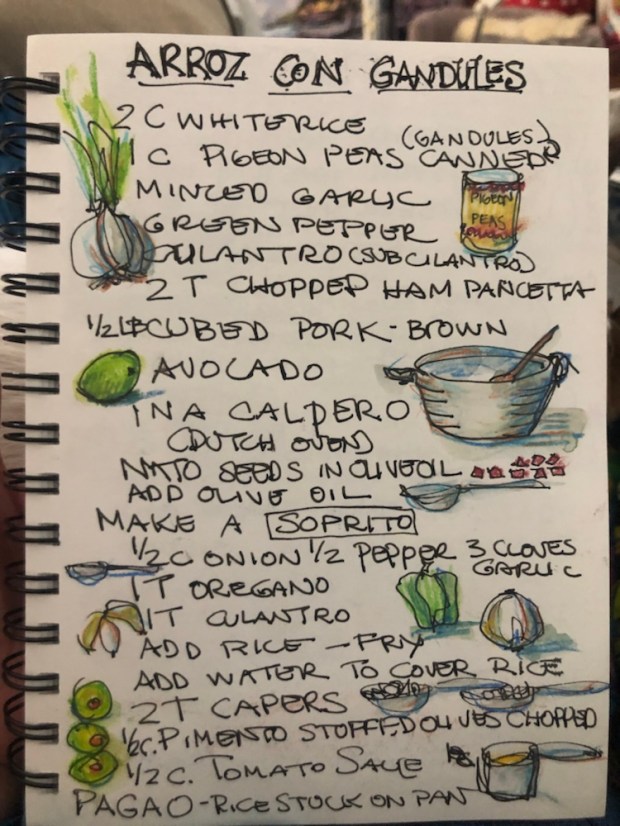 ARROZ CON GANDULES
2 C WHITE RICE
(GANDULES)
1 C PIGEON PEAS CANNED
MINCED GARLIC
PIGEON
PEAS
GREEN PEPPER
CULANTRO (SUB CILANTRO)
2 T CHOPPED HAM PANCETTA
1/2 LB CUBED PORK - BROWN
AVOCADO
IN A CALDERO
(DUTCH OVEN)
SEEDS IN OLIVE OIL
ADD OLIVE OIL
MAKE A SOFRITO
1/2 C ONION 1/2 PEPPER 3 CLOVES
GARLIC
1 T OREGANO
1 T CULANTRO
ADD RICE - FRY
ADD WATER TO COVER RICE
2 T CAPERS
1/2 C. PIMENTO STUFFED OLIVES CHOPPED
1/2 C. TOMATO SAUCE
PAGAO - RICE STUCK ON PAN